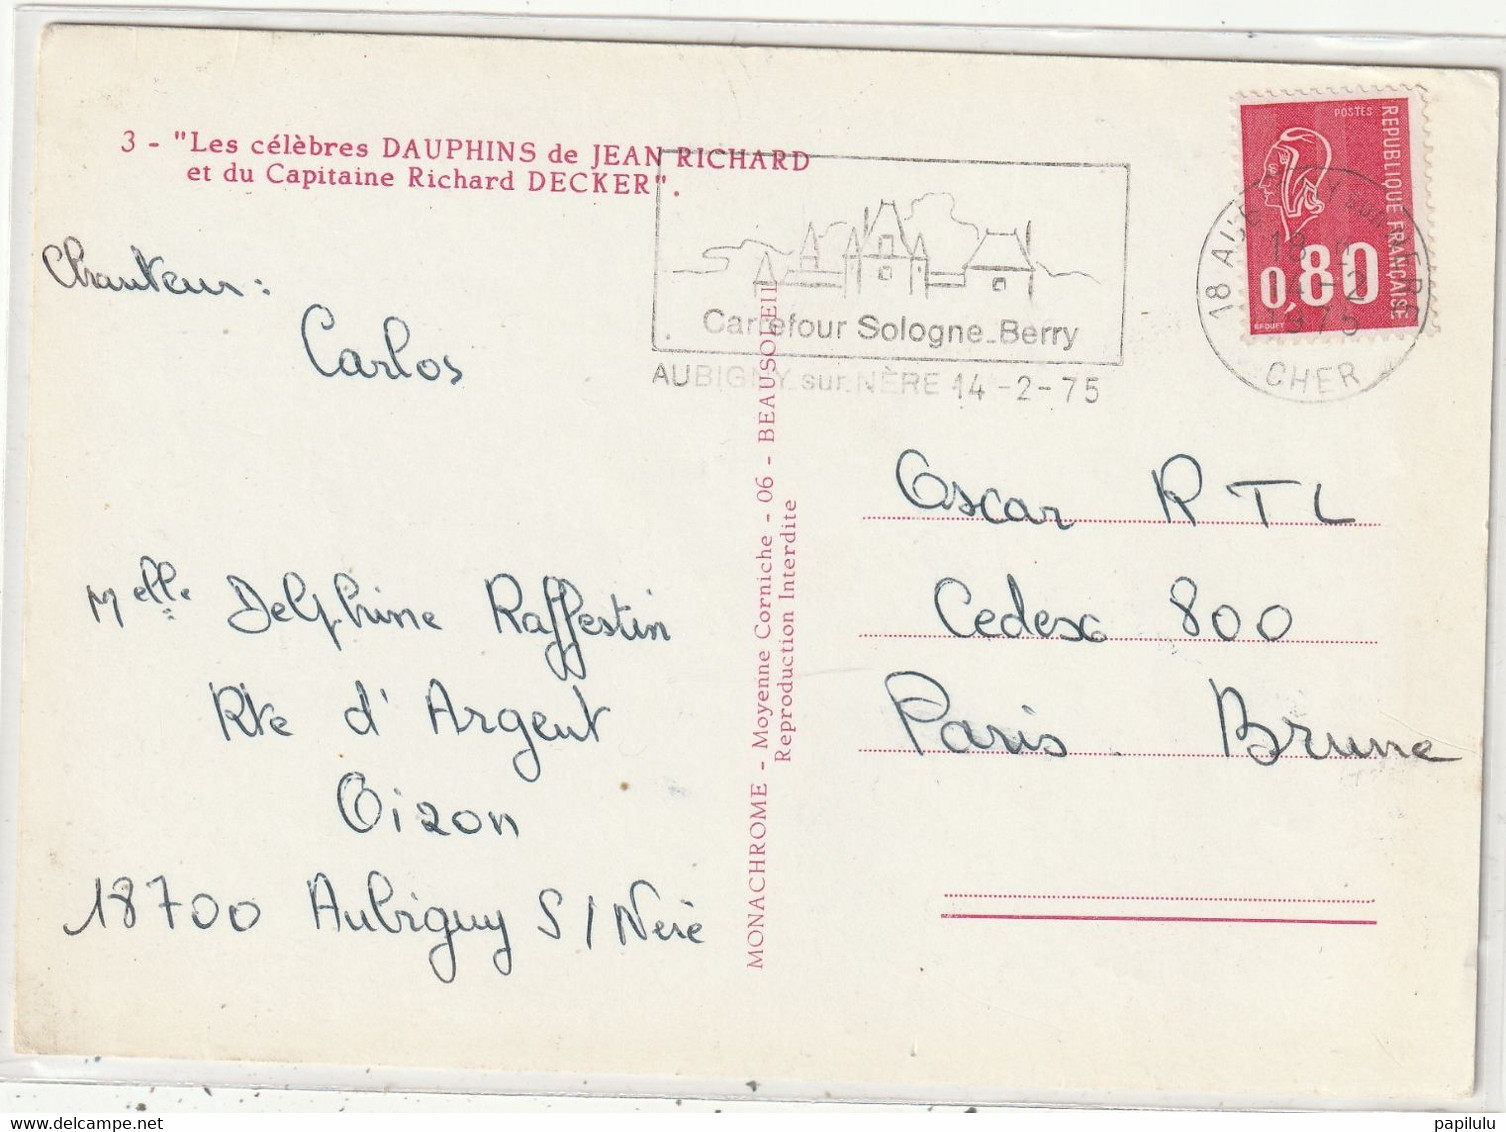 3 - "Les célèbres DAUPHINS de JEAN RICHARD
et du Capitaine Richard DECKER".
Chanteur :
Carlos
Melle Delphine Raffestin
Rte d'Argent
Oizon
18700 Aubigny S/Nère
MONACHROME - Moyenne Corniche - 06 - BEAUSOLEIL
Reproduction Interdite
Carrefour Sologne-Berry
AUBIGNY sur NÈRE 14-2-75
POSTES
REPUBLIQUE FRANÇAISE
0,80
BEQUET
18 AUBIGNY SUR NERE
18 H
14-2
1975
CHER
Oscar RTL
Cedex 800
Paris. Brune
papilulu